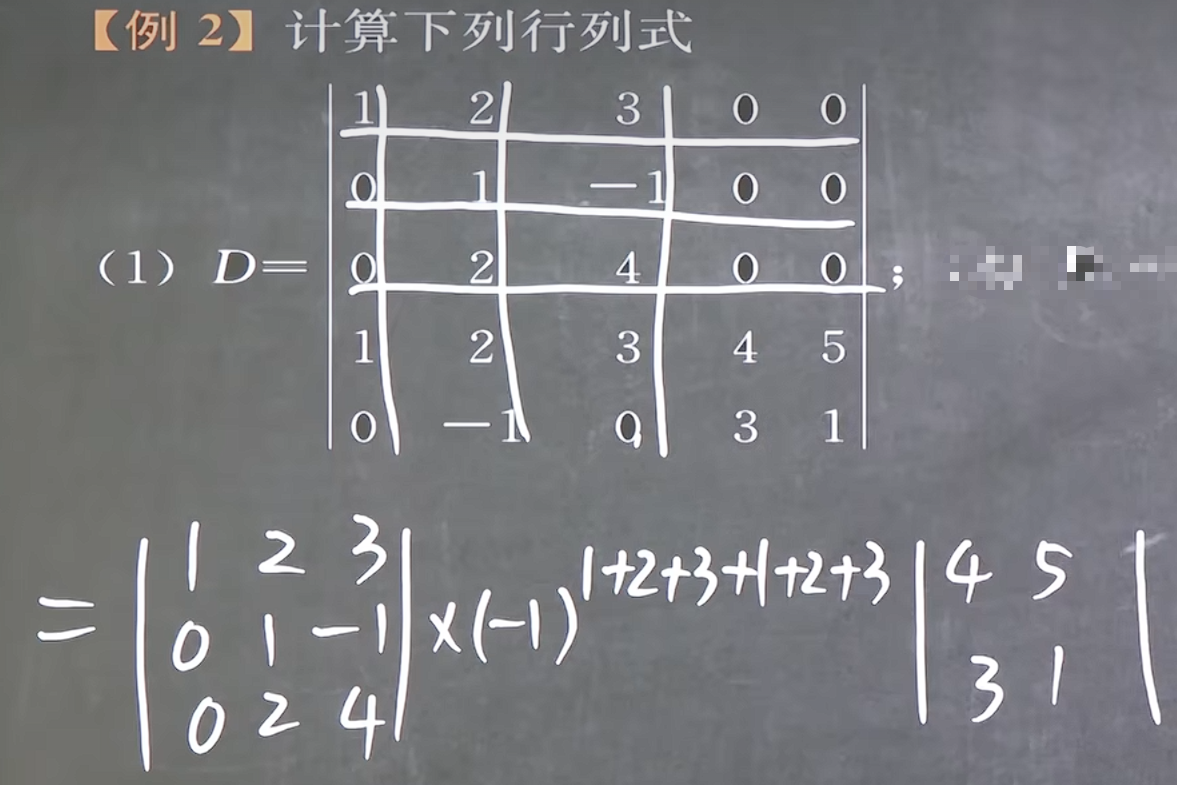 【例 2】 计算下列行列式
1 2 3 0 0
0 1 －1 0 0
（1） D＝ 0 2 4 0 0 ；
1 2 3 4 5
0 －1 0 3 1
1 2 3
= 0 1 -1 ×(-1)^1+2+3+1+2+3 4 5
0 2 4 3 1